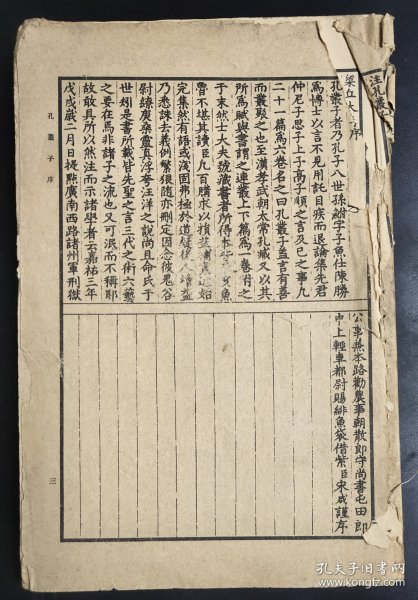 注孔叢子序
孔叢子者乃孔子八世孫鮒字子魚仕陳勝
為博士以言不見用託目疾而退論集先君
仲尼子思子上子高子順之言及己之事凡
二十一篇為六卷名之曰孔叢子蓋言有善
而叢聚之也至漢孝武朝太常孔臧又以其
所為賦與書謂之連叢上下篇為一卷附之
于末然士大夫號藏書者所得本
魯不堪其讀臣凡百購求以損
定集然有語或淺固弗極於道疑後人增益
乃悉誅去義例繁猥隨亦刪定因念彼鬼谷
尉繚庾桑靈真浮夸汪洋之說尚且命氏于
世矧是書所載皆先聖之言三代之術六藝
之要在焉非諸子之流也又可泯而不稱耶
故敢具所以然注而示諸學者云嘉祐三年
戊戌歲二月日提點廣南西路諸州軍刑獄
公事兼本路勸農事朝散郎守尚書屯田郎
中上輕車都尉賜緋魚袋借紫臣宋咸謹序
孔叢子序
三
孔夫子旧书网
www.kongfz.com